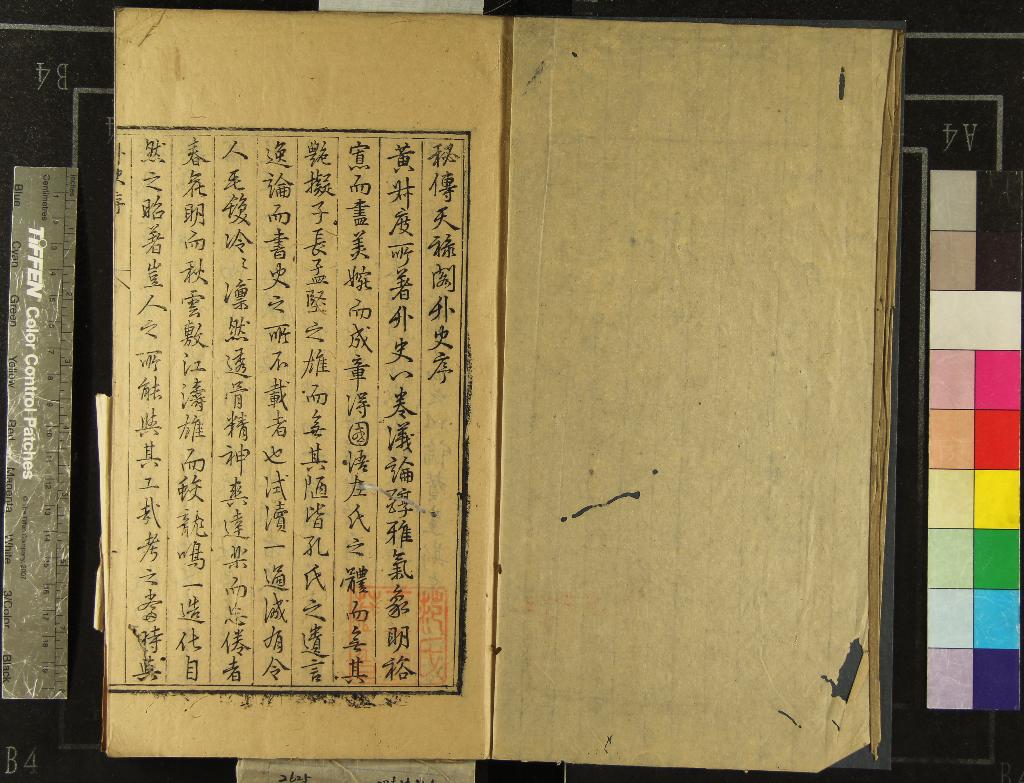 秘傳天祿閣外史序
黃叔度所著外史八卷議論醇雅氣象明裕
寬而盡美婉而成章得國語左氏之體而無其
艶擬子長孟堅之雄而無其陋皆孔氏之遺言
逸論而書史之所不載者也試讀一過誠有令
人毛發冷〻凜然透骨精神爽達樂而忘倦者
春花明而秋雲敷江濤雄而蛟龍鳴一造化自
然之昭著豈人之所能與其工哉考之當時與
外史序
TIFFEN Color Control Patches
© The Tiffen Company, 2007
Centimetres
Inches
Blue
Cyan
Green
Yellow
Red
Magenta
White
3/Color
Black
B4
A4
B4
2625